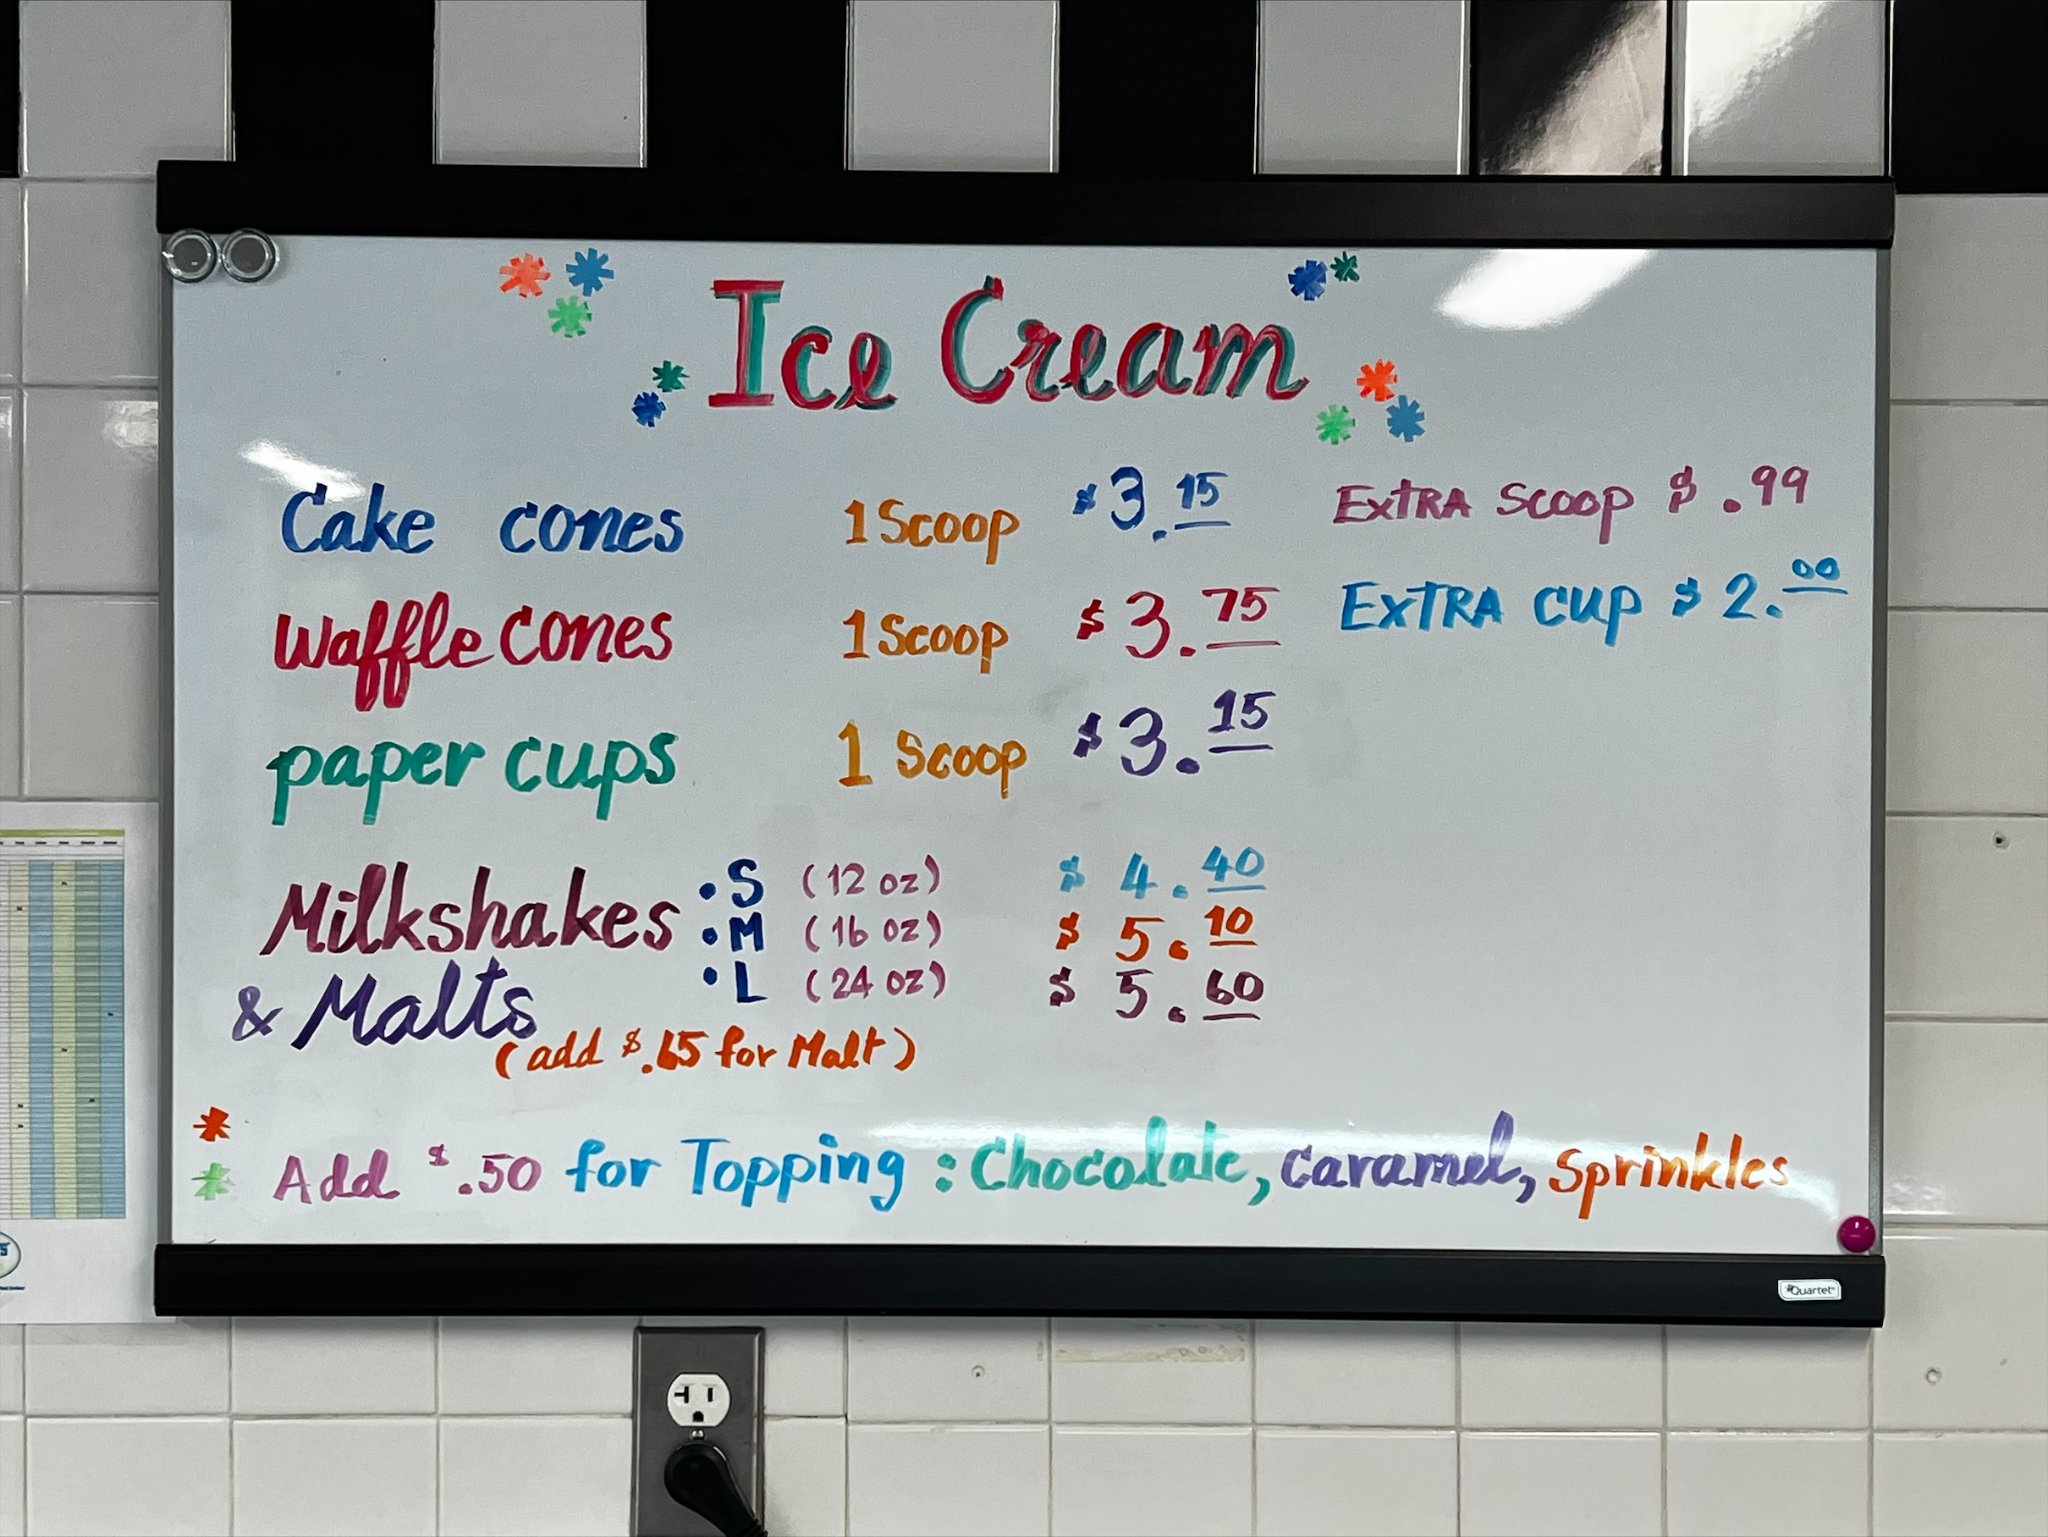 Ice Cream
Cake cones 1 Scoop $3.15
Waffle cones 1 Scoop $3.75
paper cups 1 Scoop $3.15
EXTRA SCOOP $.99
EXTRA CUP $2.00
Milkshakes
& Malts
• S (12 oz) $4.40
• M (16 oz) $5.10
• L (24 oz) $5.60
(add $.65 for Malt)
Add $.50 for Topping: Chocolate, Caramel, Sprinkles
Quartet